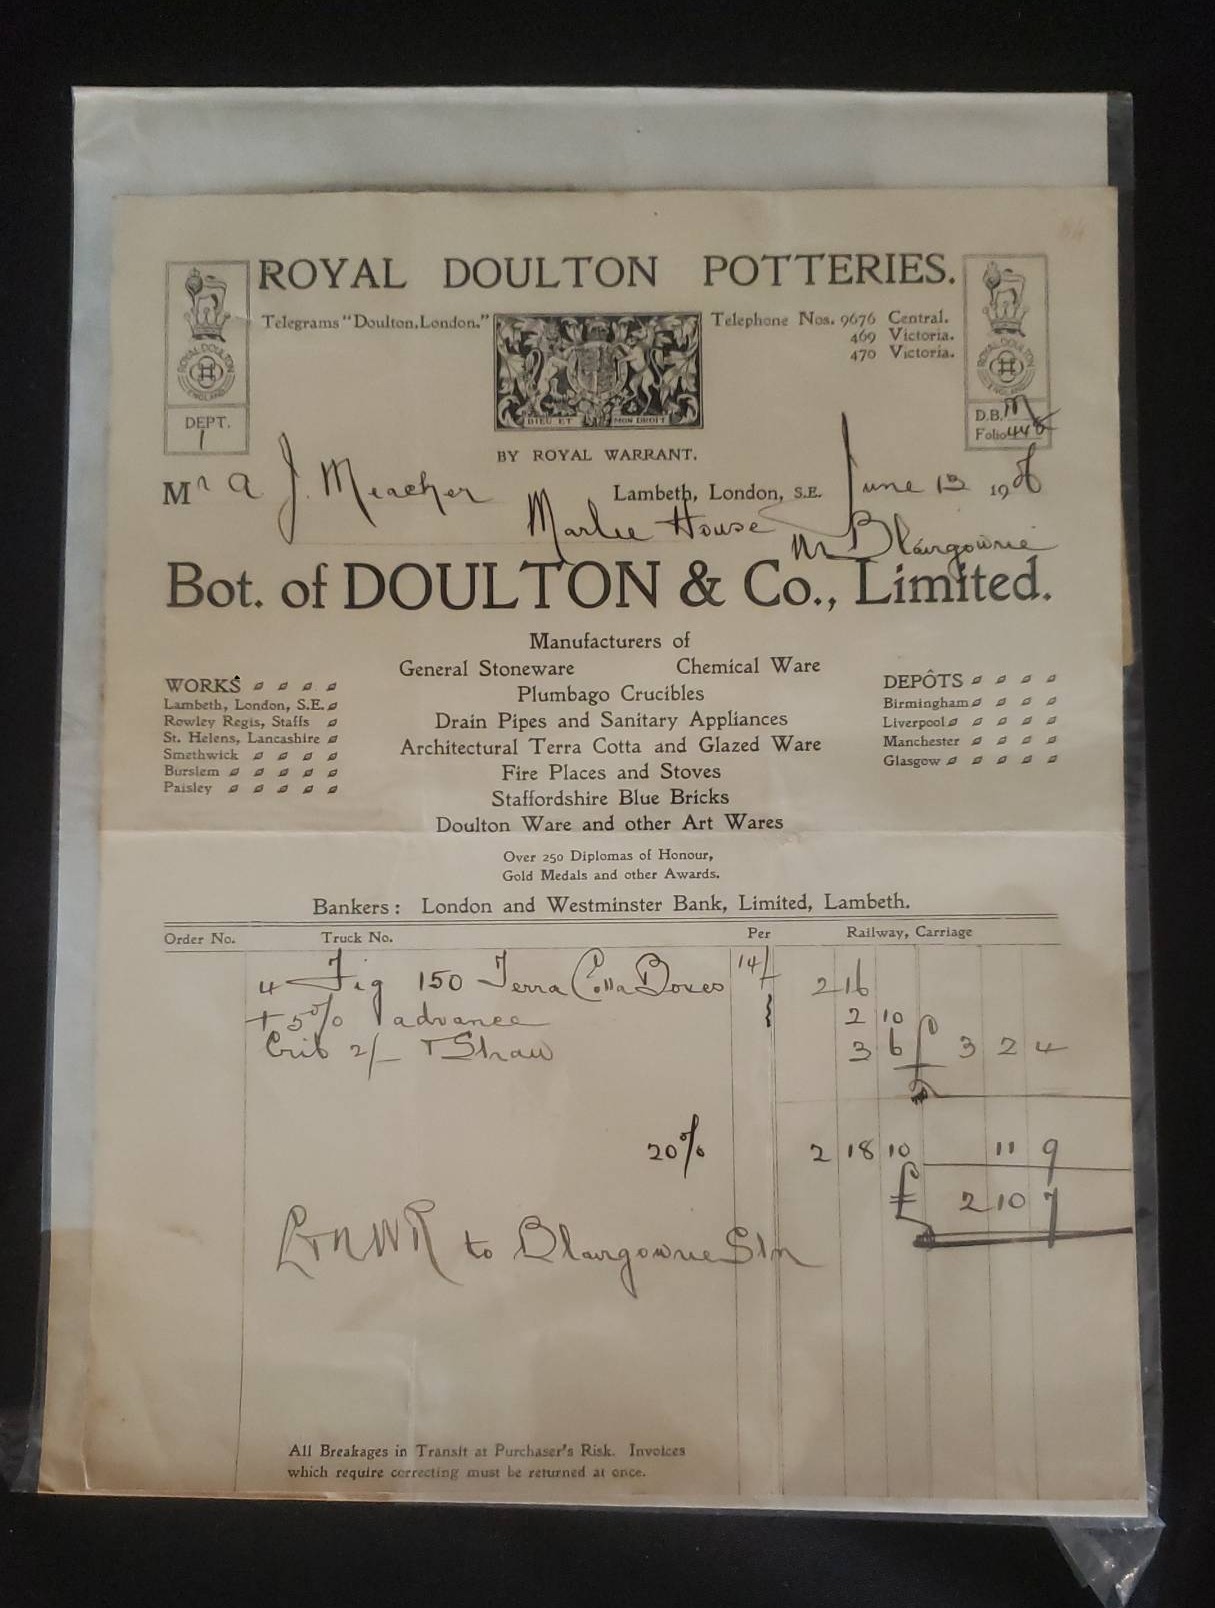 ROYAL DOULTON POTTERIES.
Telegrams "Doulton, London."
Telephone Nos. 9676 Central.
469 Victoria.
470 Victoria.
ROYAL DOULTON
ENGLAND
ROYAL DOULTON
ENGLAND
DIEU ET MON DROIT
DEPT.
1
D.B. M
Folio 448
BY ROYAL WARRANT.
Mr A J. Meacher
Lambeth, London, S.E. June 13 1908
Marlee House Nr Blairgowrie
Bot. of DOULTON & Co., Limited.
Manufacturers of
General Stoneware Chemical Ware
Plumbago Crucibles
Drain Pipes and Sanitary Appliances
Architectural Terra Cotta and Glazed Ware
Fire Places and Stoves
Staffordshire Blue Bricks
Doulton Ware and other Art Wares
WORKS
Lambeth, London, S.E.
Rowley Regis, Staffs
St. Helens, Lancashire
Smethwick
Burslem
Paisley
DEPÔTS
Birmingham
Liverpool
Manchester
Glasgow
Over 250 Diplomas of Honour,
Gold Medals and other Awards.
Bankers: London and Westminster Bank, Limited, Lambeth.
Order No. Truck No. Per Railway, Carriage
4 Fig 150 Terra Cotta Boxes 14/ 2 16
+ 5% advance 2 10
Crib 2/- + Straw 3 6 £ 3 2 4
20% 2 18 10 11 9
£ 2 10 7
L&NWR to Blairgowrie Stn
All Breakages in Transit at Purchaser's Risk. Invoices
which require correcting must be returned at once.